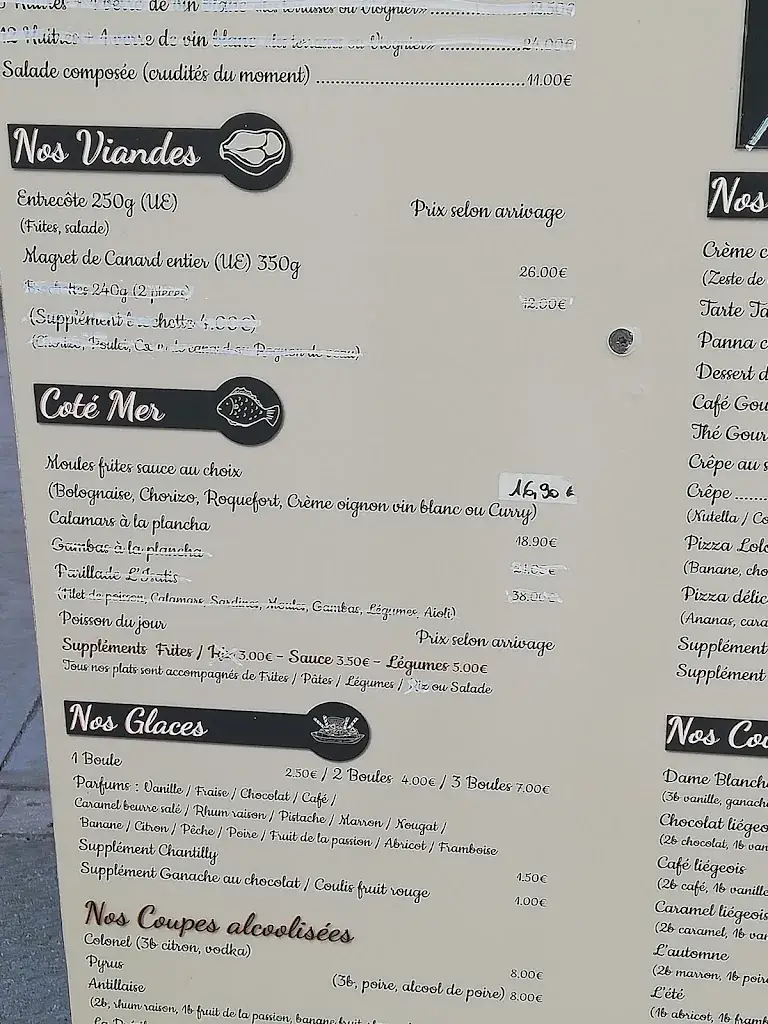 12 Huîtres + 1 verre de vin blanc «des terrasses ou Viognier» 24.00€
Salade composée (crudités du moment) 11.00€
Nos Viandes
Entrecôte 250g (UE) Prix selon arrivage
(Frites, salade)
Magret de Canard entier (UE) 350g 26.00€
240g (2 pièces) 12.00€
(Supplément 4.00€)
(Chorizo, Poulet, canard ou Rognon de veau)
Coté Mer
Moules frites sauce au choix 16,90€
(Bolognaise, Chorizo, Roquefort, Crème oignon vin blanc ou Curry)
Calamars à la plancha 18.90€
Gambas à la plancha
Parillade L'Instis 38.00€
(Filet de poisson, Calamars, Sardines, Moules, Gambas, Légumes, Aioli)
Poisson du jour Prix selon arrivage
Suppléments Frites / Riz 3.00€ - Sauce 3.50€ - Légumes 5.00€
Tous nos plats sont accompagnés de Frites / Pâtes / Légumes / Riz ou Salade
Nos Glaces
1 Boule 2.50€ / 2 Boules 4.00€ / 3 Boules 7.00€
Parfums : Vanille / Fraise / Chocolat / Café /
Caramel beurre salé / Rhum raison / Pistache / Marron / Nougat /
Banane / Citron / Pêche / Poire / Fruit de la passion / Abricot / Framboise
Supplément Chantilly 1.50€
Supplément Ganache au chocolat / Coulis fruit rouge 1.00€
Nos Coupes alcoolisées
Colonel (3b citron, vodka) 8.00€
Pyrus (3b, poire, alcool de poire) 8.00€
Antillaise
(2b, rhum raison, 1b fruit de la passion, banane
Nos
Crème
(Zeste de
Tarte
Panna
Dessert
Café
Thé
Crêpe au
Crêpe
(Nutella /
Pizza
(Banane,
Pizza
(Ananas,
Supplément
Supplément
Nos
Dame
(3b vanille,
Chocolat
(2b chocolat, 1b
Café liégeois
(2b café, 1b vanille
Caramel liégeois
(2b caramel, 1b
L'automne
(2b marron, 1b
L'été
(1b abricot, 1b